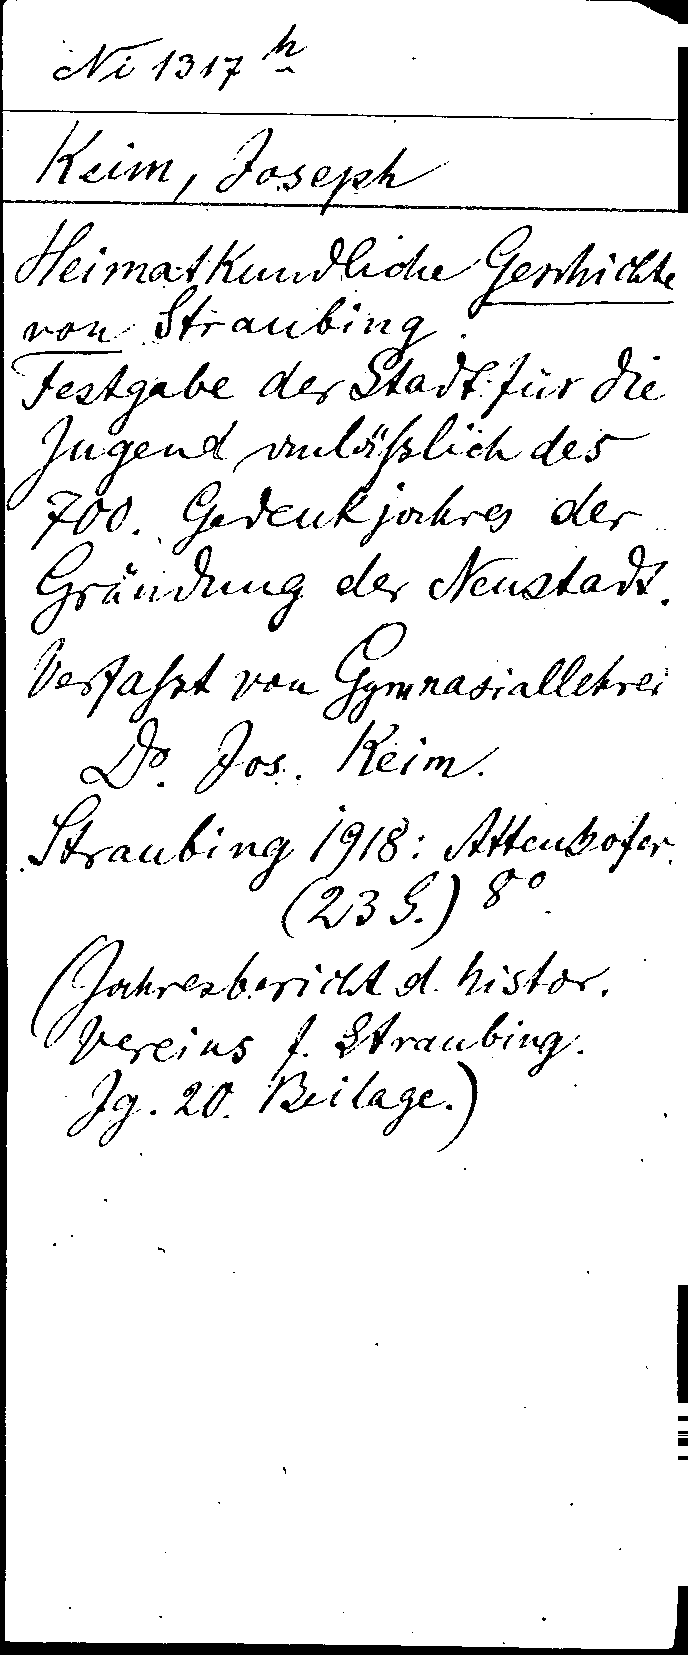 Ni 1317 h
Keim, Joseph
Heimatkundliche Geschichte
von Straubing.
Festgabe der Stadt für die
Jugend anläßlich des
700. Gedenkjahres der
Gründung der Neustadt.
Verfaßt von Gymnasiallehrer
Dr. Jos. Keim.
Straubing 1918: Attenkofer.
(23 S.) 8°.
(Jahresbericht d. histor.
Vereins f. Straubing.
Jg. 20. Beilage.)